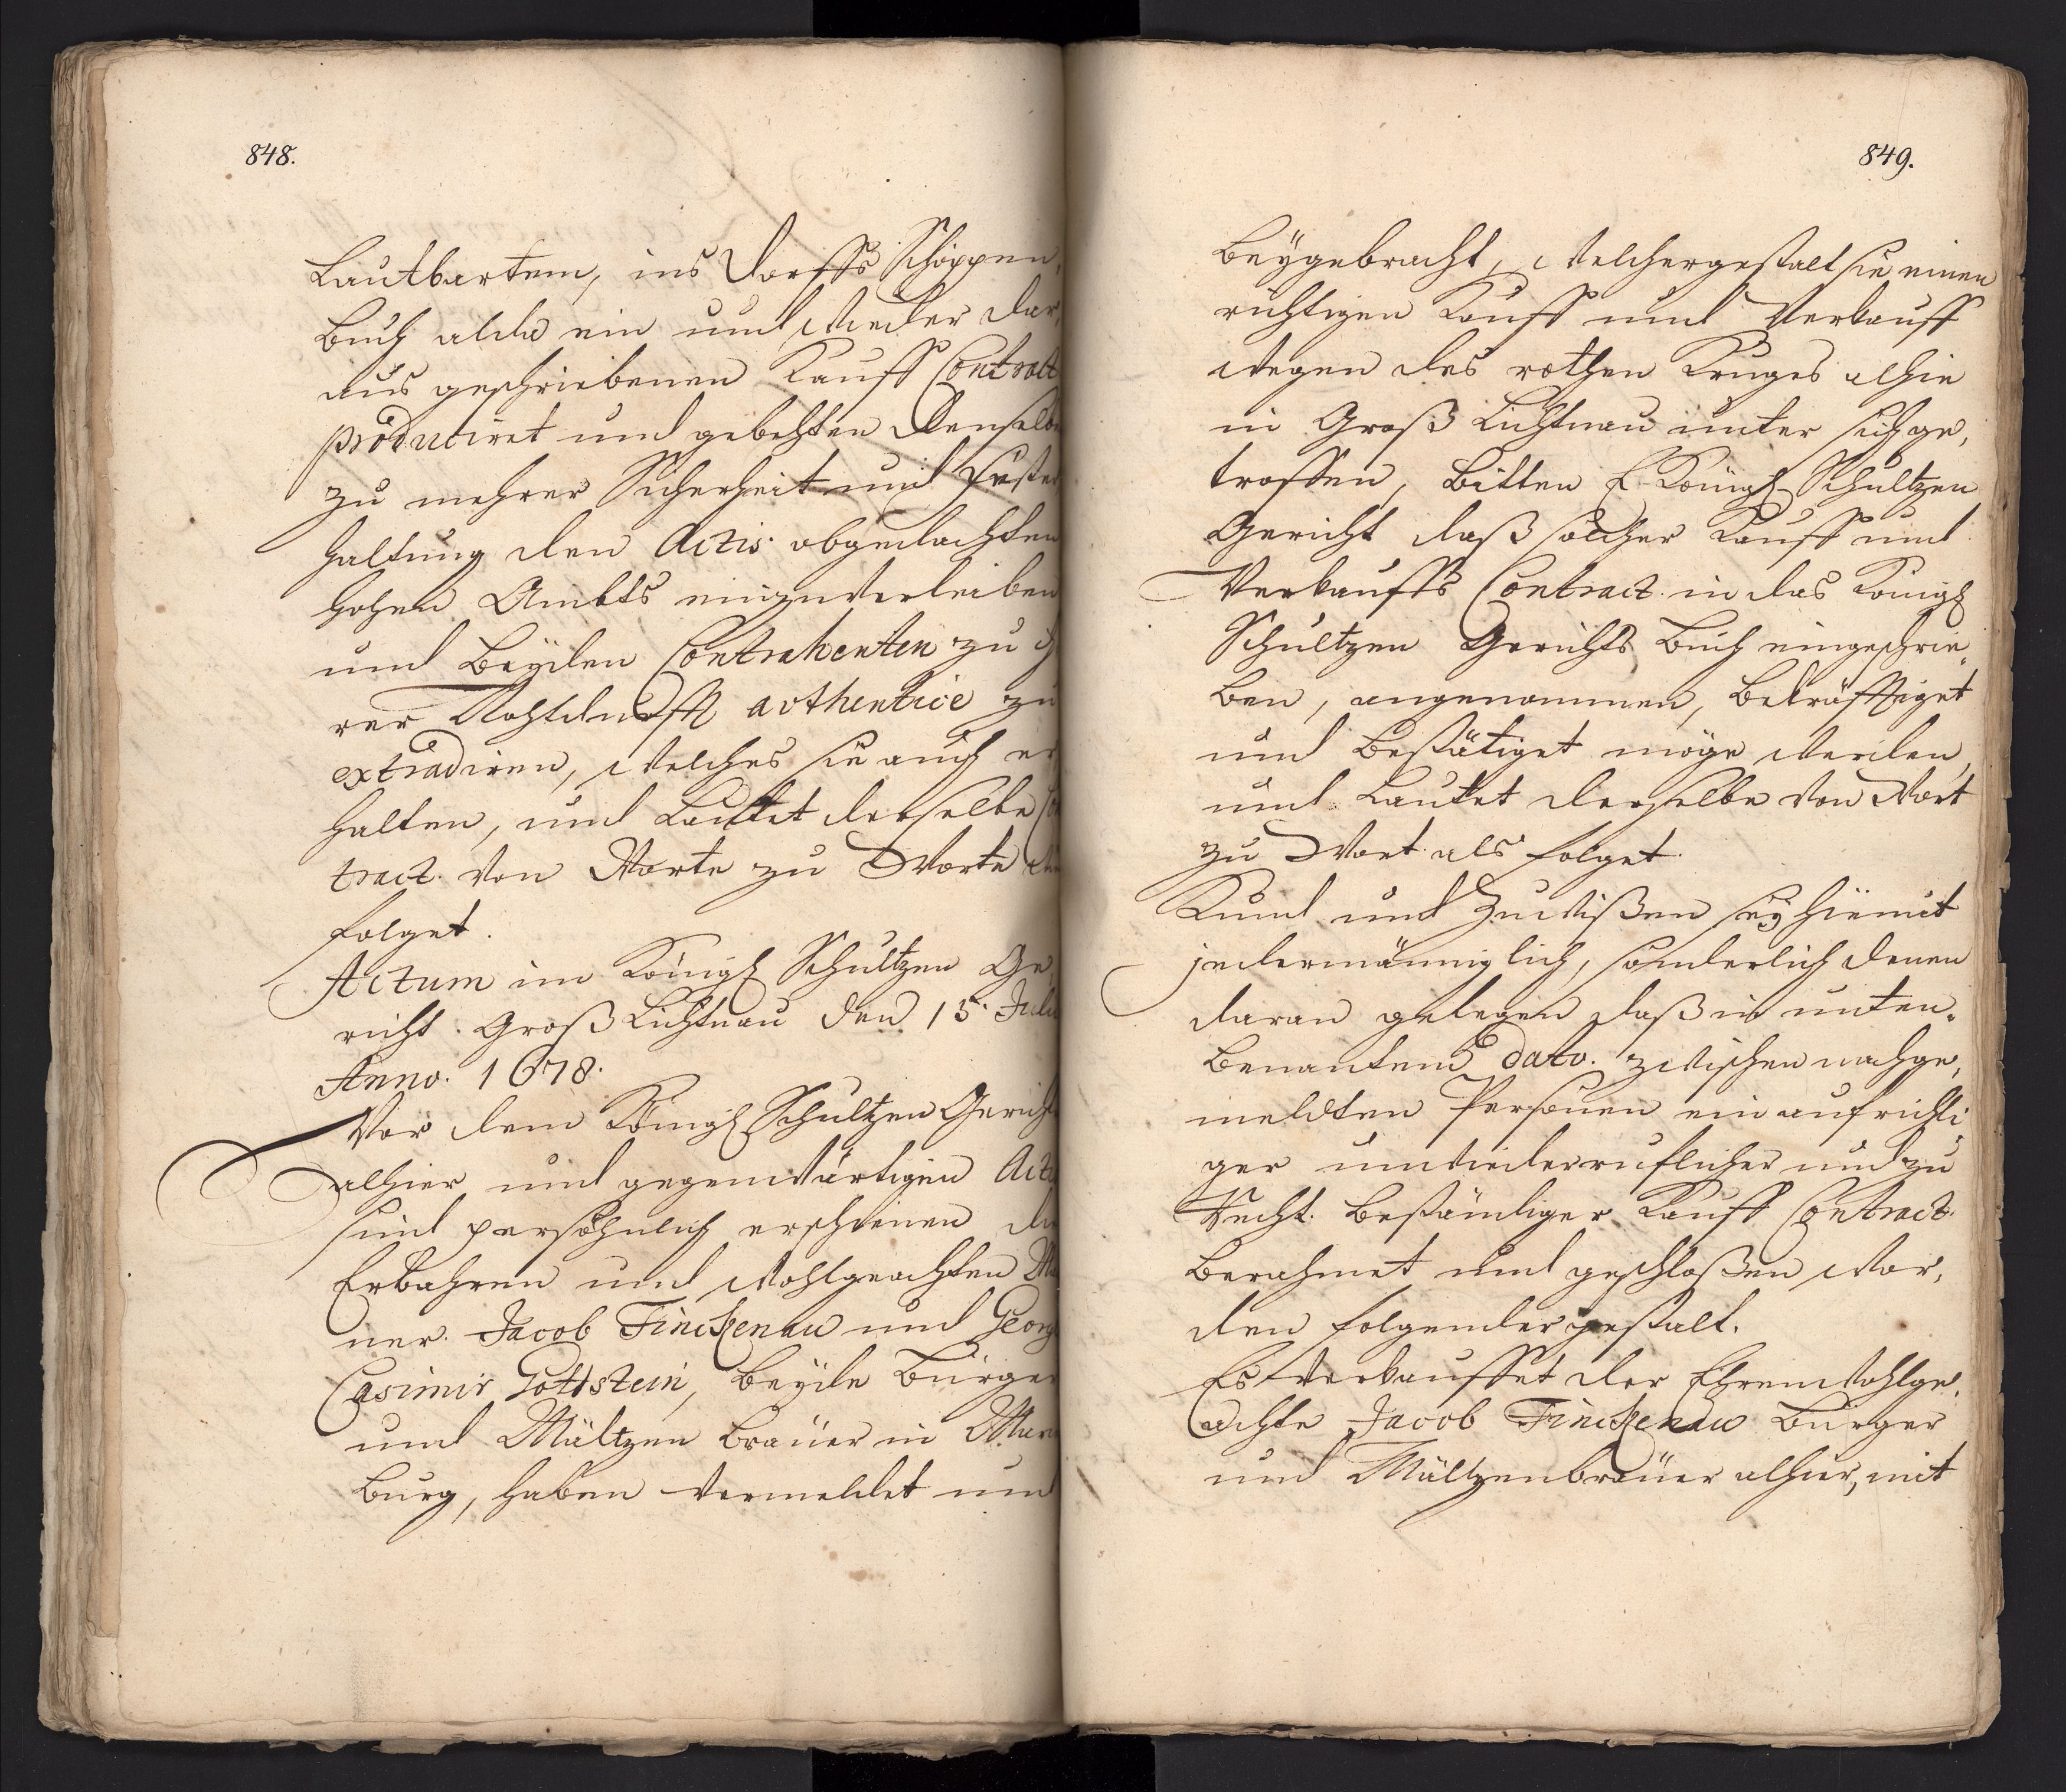 848.
Lautbartem, ins Dorffs Schöppen,
Buch alda ein und wieder dar,
aus geschriebenen Kauff Contract
produciret und gebehten denselbe
zu mehrer Sicherheit und Fester
haltung den Actis obgedachten
Hohen Ambts einzuverleiben
und Beyden Contrahenten zu ih
rer Nohtdurfft avthentice zu
extradiren, welches sie auch er
halten, und Lautet derselbe Con
tract. von Worte zu Worte
folget.
Actum im Königl Schultzen Ge
richt. Groß Lichtnau den 15. Julii
Anno. 1678.
Vor dem Königl Schultzen Gericht
alhier und gegenwärtigen Actu
sind persöhnlich erschienen die
Erbahren und Wohlgeachten Män
ner. Jacob Finckenau und Georg
Casimir Gottstein, beyde Bürger
und Mältzen Bräuer in Marien
Burg, haben vermeldet und
849.
Beygebracht, welchergestalt sie einen
richtigen Kauff und Verkauff
wegen des rothen Kruges alhie
in Groß Lichtnau unter sich ge,
troffen, Bitten E. Königl Schultzen
Gericht daß solcher Kauff und
Verkauffs Contract. in das Königl
Schultzen Gerichts Buch eingeschrie„
ben, angenommen, bekräfftiget
und bestätiget möge werden,
und Lautet derselbe von Wort
zu Wort als folget.
Kund und Zuwißen sey hiemit
jedermänniglich, sonderlich denen
daran gelegen daß in unten„
benantem dato. zwischen nachge,
meldten Persouen ein aufrichti
ger unwiederruflicher und zu
Recht. beständiger Kauff Contract.
berahmet und geschloßen wor,
den folgender gestalt.
Es verkauffet der Ehrenwohlge,
achte Jacob Finckenau Bürger
und Mältzenbräuer alhier, mit